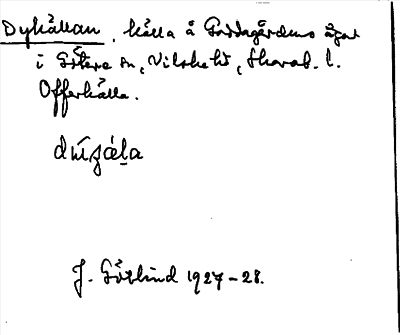 Dykällan, källa å Prästgårdens ägor
i Götene sn, Vilske hd, Skarab. l.
Offerkälla.
J. Götlind 1927-28.